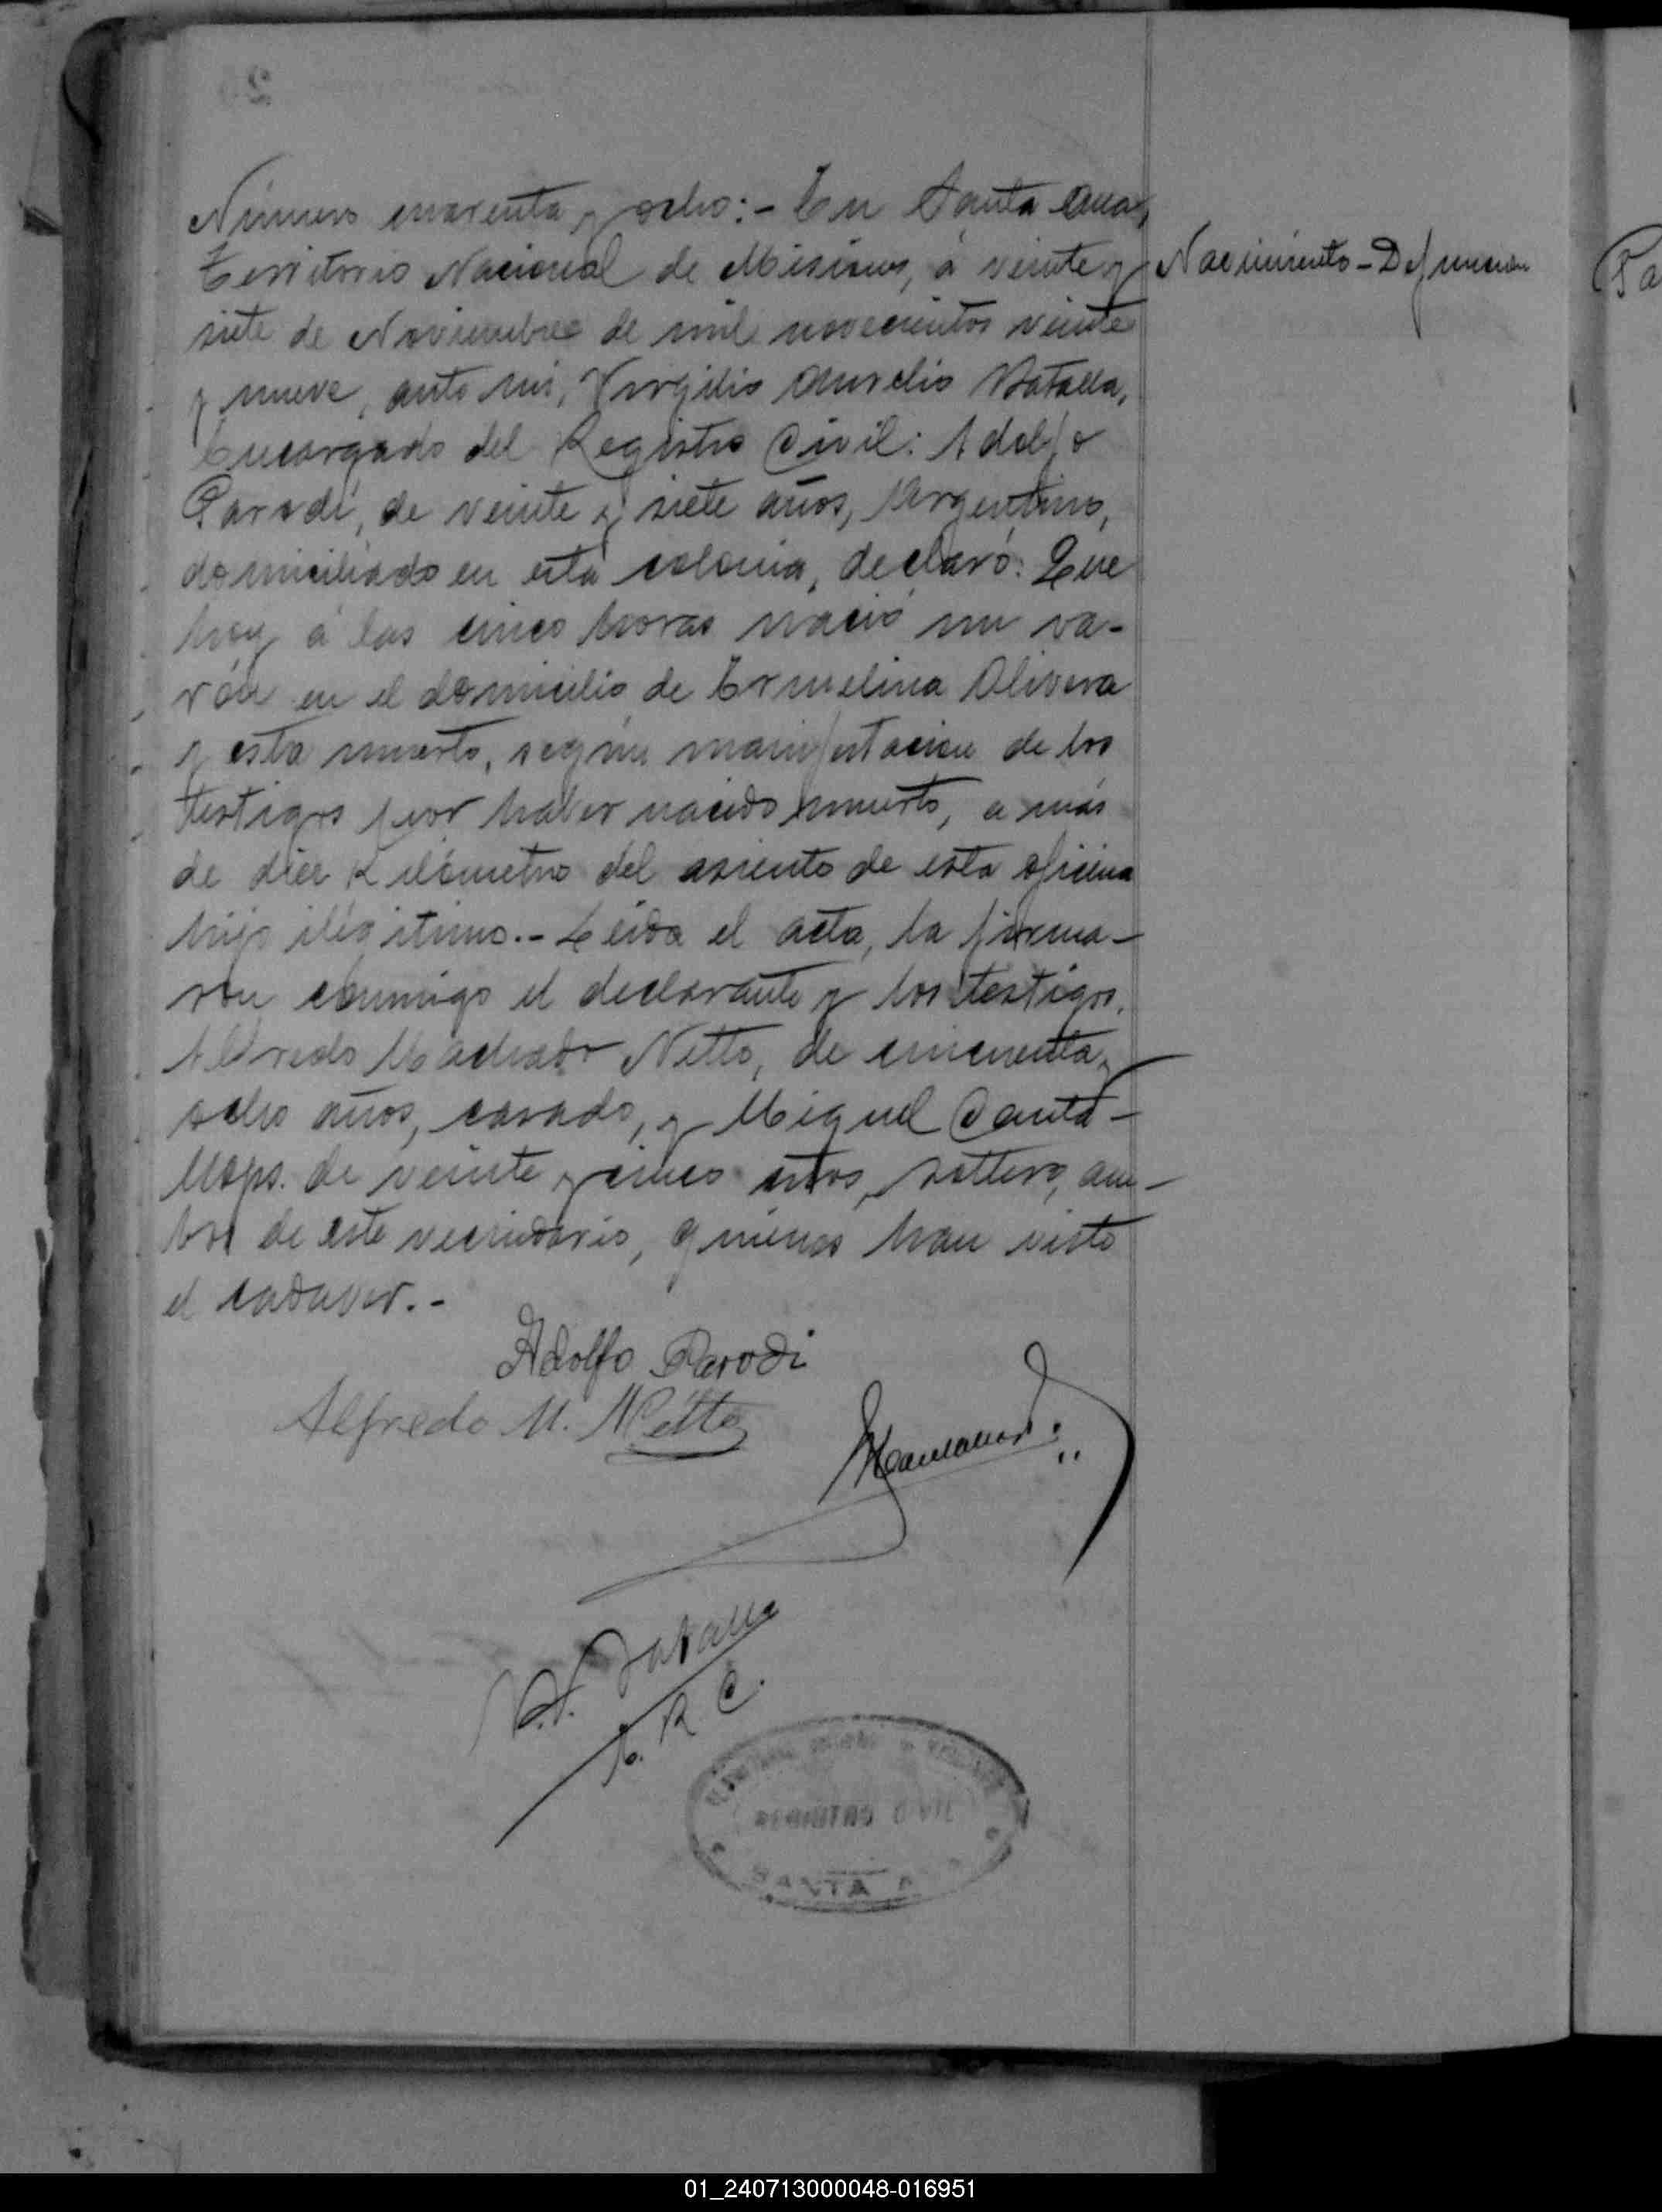 Número cuarenta y ocho:- En Santa Ana,
Territorio Nacional de Misiones, á veinte y
Nacimiento-Defunción
siete de Noviembre de mil novecientos veinte
y nueve, ante mi, Virgilio Aurelio Batalla,
Encargado del Registro Civil: Adolfo
Parodi, de veinte y siete años, Argentino,
domiciliado en esta colonia, declaró: Que
hoy á las cinco horas nació un va-
rón en el domicilio de Ermelina Olivera
y esta muerto, según manifestacion de los
testigos por haber nacido muerto, a más
de diez Kilómetro del asiento de esta oficina
hijo ilégitimo.- Leida el acta, la firma-
ron conmigo el declarante y los testigos.
Alfredo Machado Netto, de cincuenta y
ocho años, casado, y Miguel
de veinte y cinco años, soltero, am-
bos de este vecindario, quienes han visto
el cadaver.-
Adolfo Parodi
Alfredo M. Netto
V.A. Batalla
E. R. C.
REGISTRO CIVIL
SANTA
01_240713000048-016951